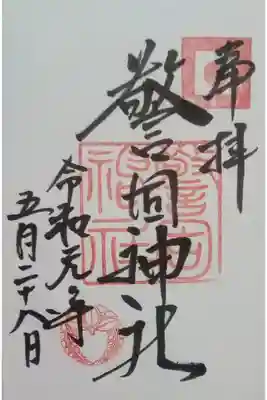 奉拝
警固神社
令和元年
五月二十八日